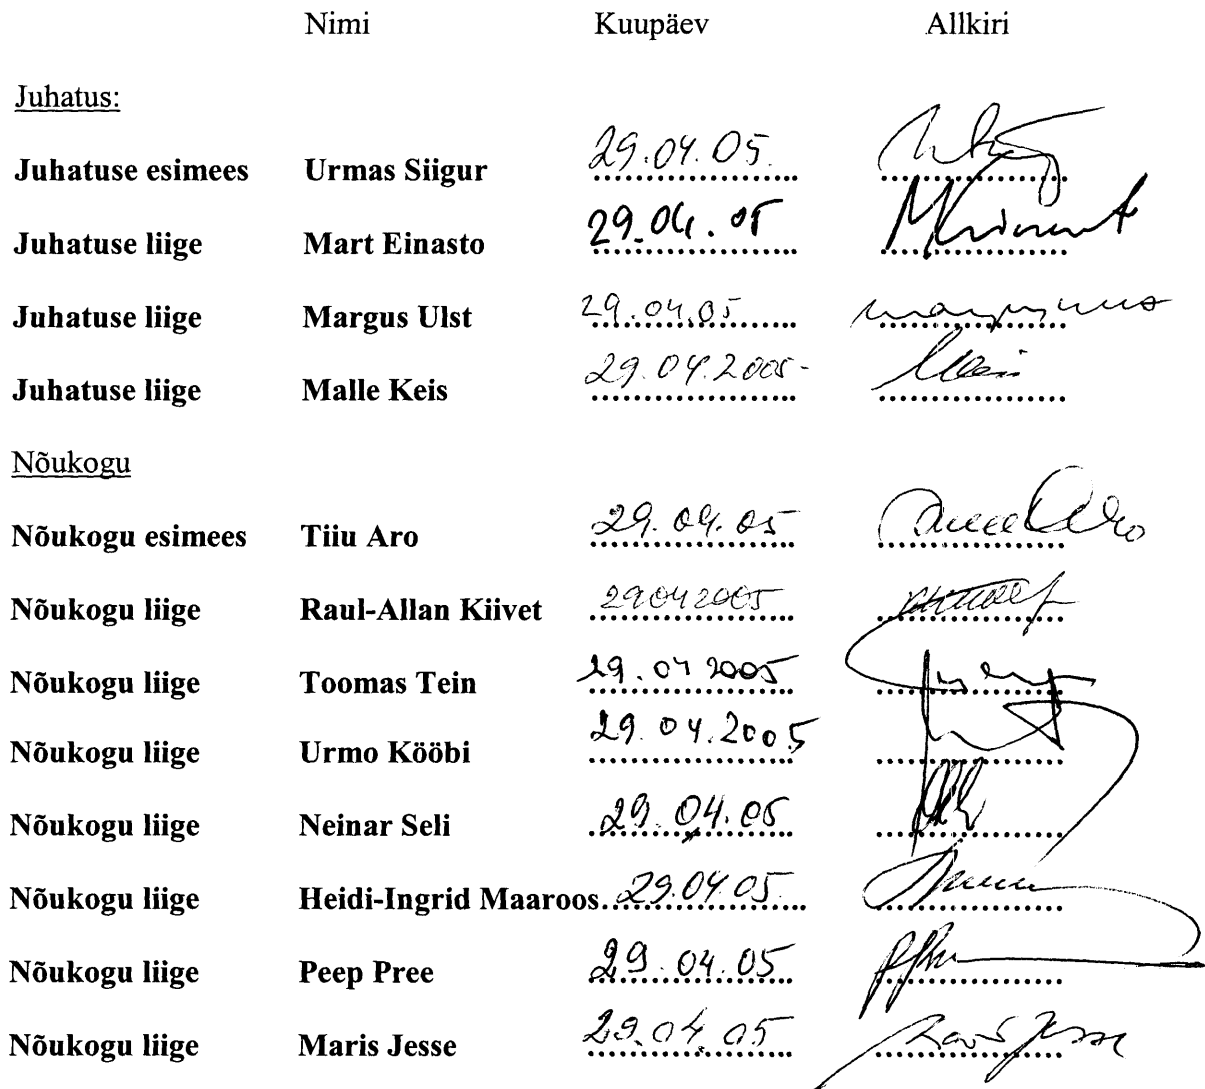 Nimi Kuupäev Allkiri
Juhatus:
Juhatuse esimees Urmas Siigur 29.04.05.
Juhatuse liige Mart Einasto 29.04.05
Juhatuse liige Margus Ulst 29.04.05
Juhatuse liige Malle Keis 29.04.2005-
Nõukogu
Nõukogu esimees Tiiu Aro 29.04.05
Nõukogu liige Raul-Allan Kiivet 29042005
Nõukogu liige Toomas Tein 29.04 2005
Nõukogu liige Urmo Kööbi 29.04.2005
Nõukogu liige Neinar Seli 29.04.05
Nõukogu liige Heidi-Ingrid Maaroos 29.04.05
Nõukogu liige Peep Pree 29.04.05
Nõukogu liige Maris Jesse 29.04.05